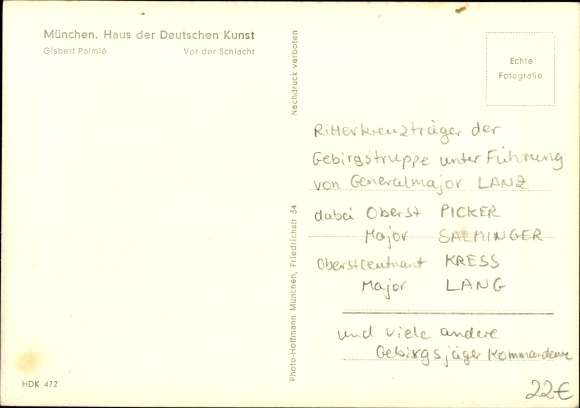 München. Haus der Deutschen Kunst
Gisbert Palmié Vor der Schlacht
Nachdruck verboten
Echte
Fotografie
Ritterkreuzträger der
Gebirgstruppe unter Führung
von Generalmajor LANZ
dabei Oberst PICKER
Major SALMINGER
Oberstleutnant KRESS
Major LANG
und viele andere
Gebirgsjäger Kommandeure
Photo-Hoffmann München, Friedrichstr 34
HDK 472
22€